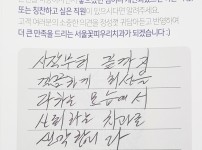 또는 칭찬하고 싶은 직원이 있으시다면 알려주세요.
고객 여러분의 소중한 의견을 정성껏 귀담아듣고 반영하여
더 큰 만족을 드리는 서울꽃피우리치과가 되겠습니다 :)
시작부터 끝까지
꼼꼼하게 최선을
다하는 모습에서
신뢰하는 치과로
선약합니다